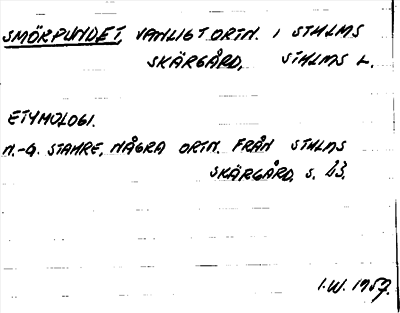 SMÖRPUNDET, VANLIGT ORTN. I STHLMS
SKÄRGÅRD, STHLMS L.
ETYMOLOGI.
N.-G. STAHRE, NÅGRA ORTN. FRÅN STHLMS
SKÄRGÅRD, S. 43.
I.W. 1957.